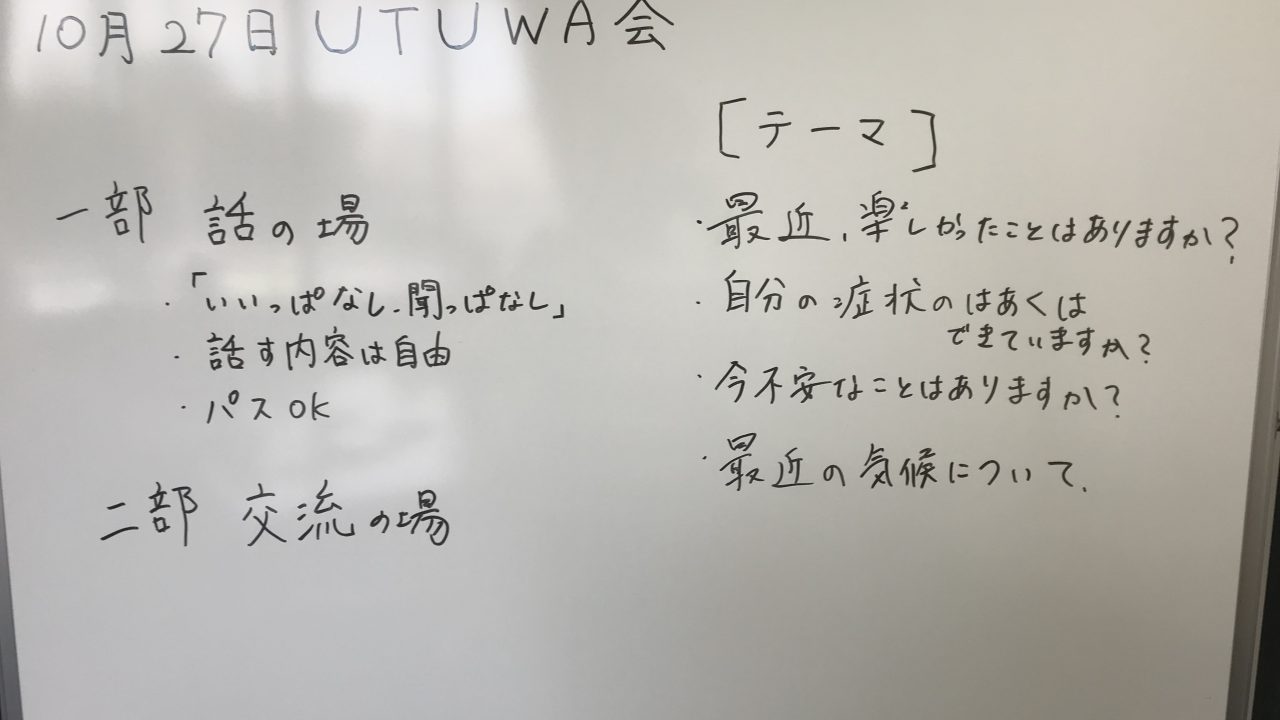 10月27日UTUWA会
一部 話の場
・「いいっぱなし、聞っぱなし」
・話す内容は自由
・パスOK
二部 交流の場
[テーマ]
・最近、楽しかったことはありますか?
・自分の症状のはあくは
できていますか?
・今不安なことはありますか?
・最近の気候について、